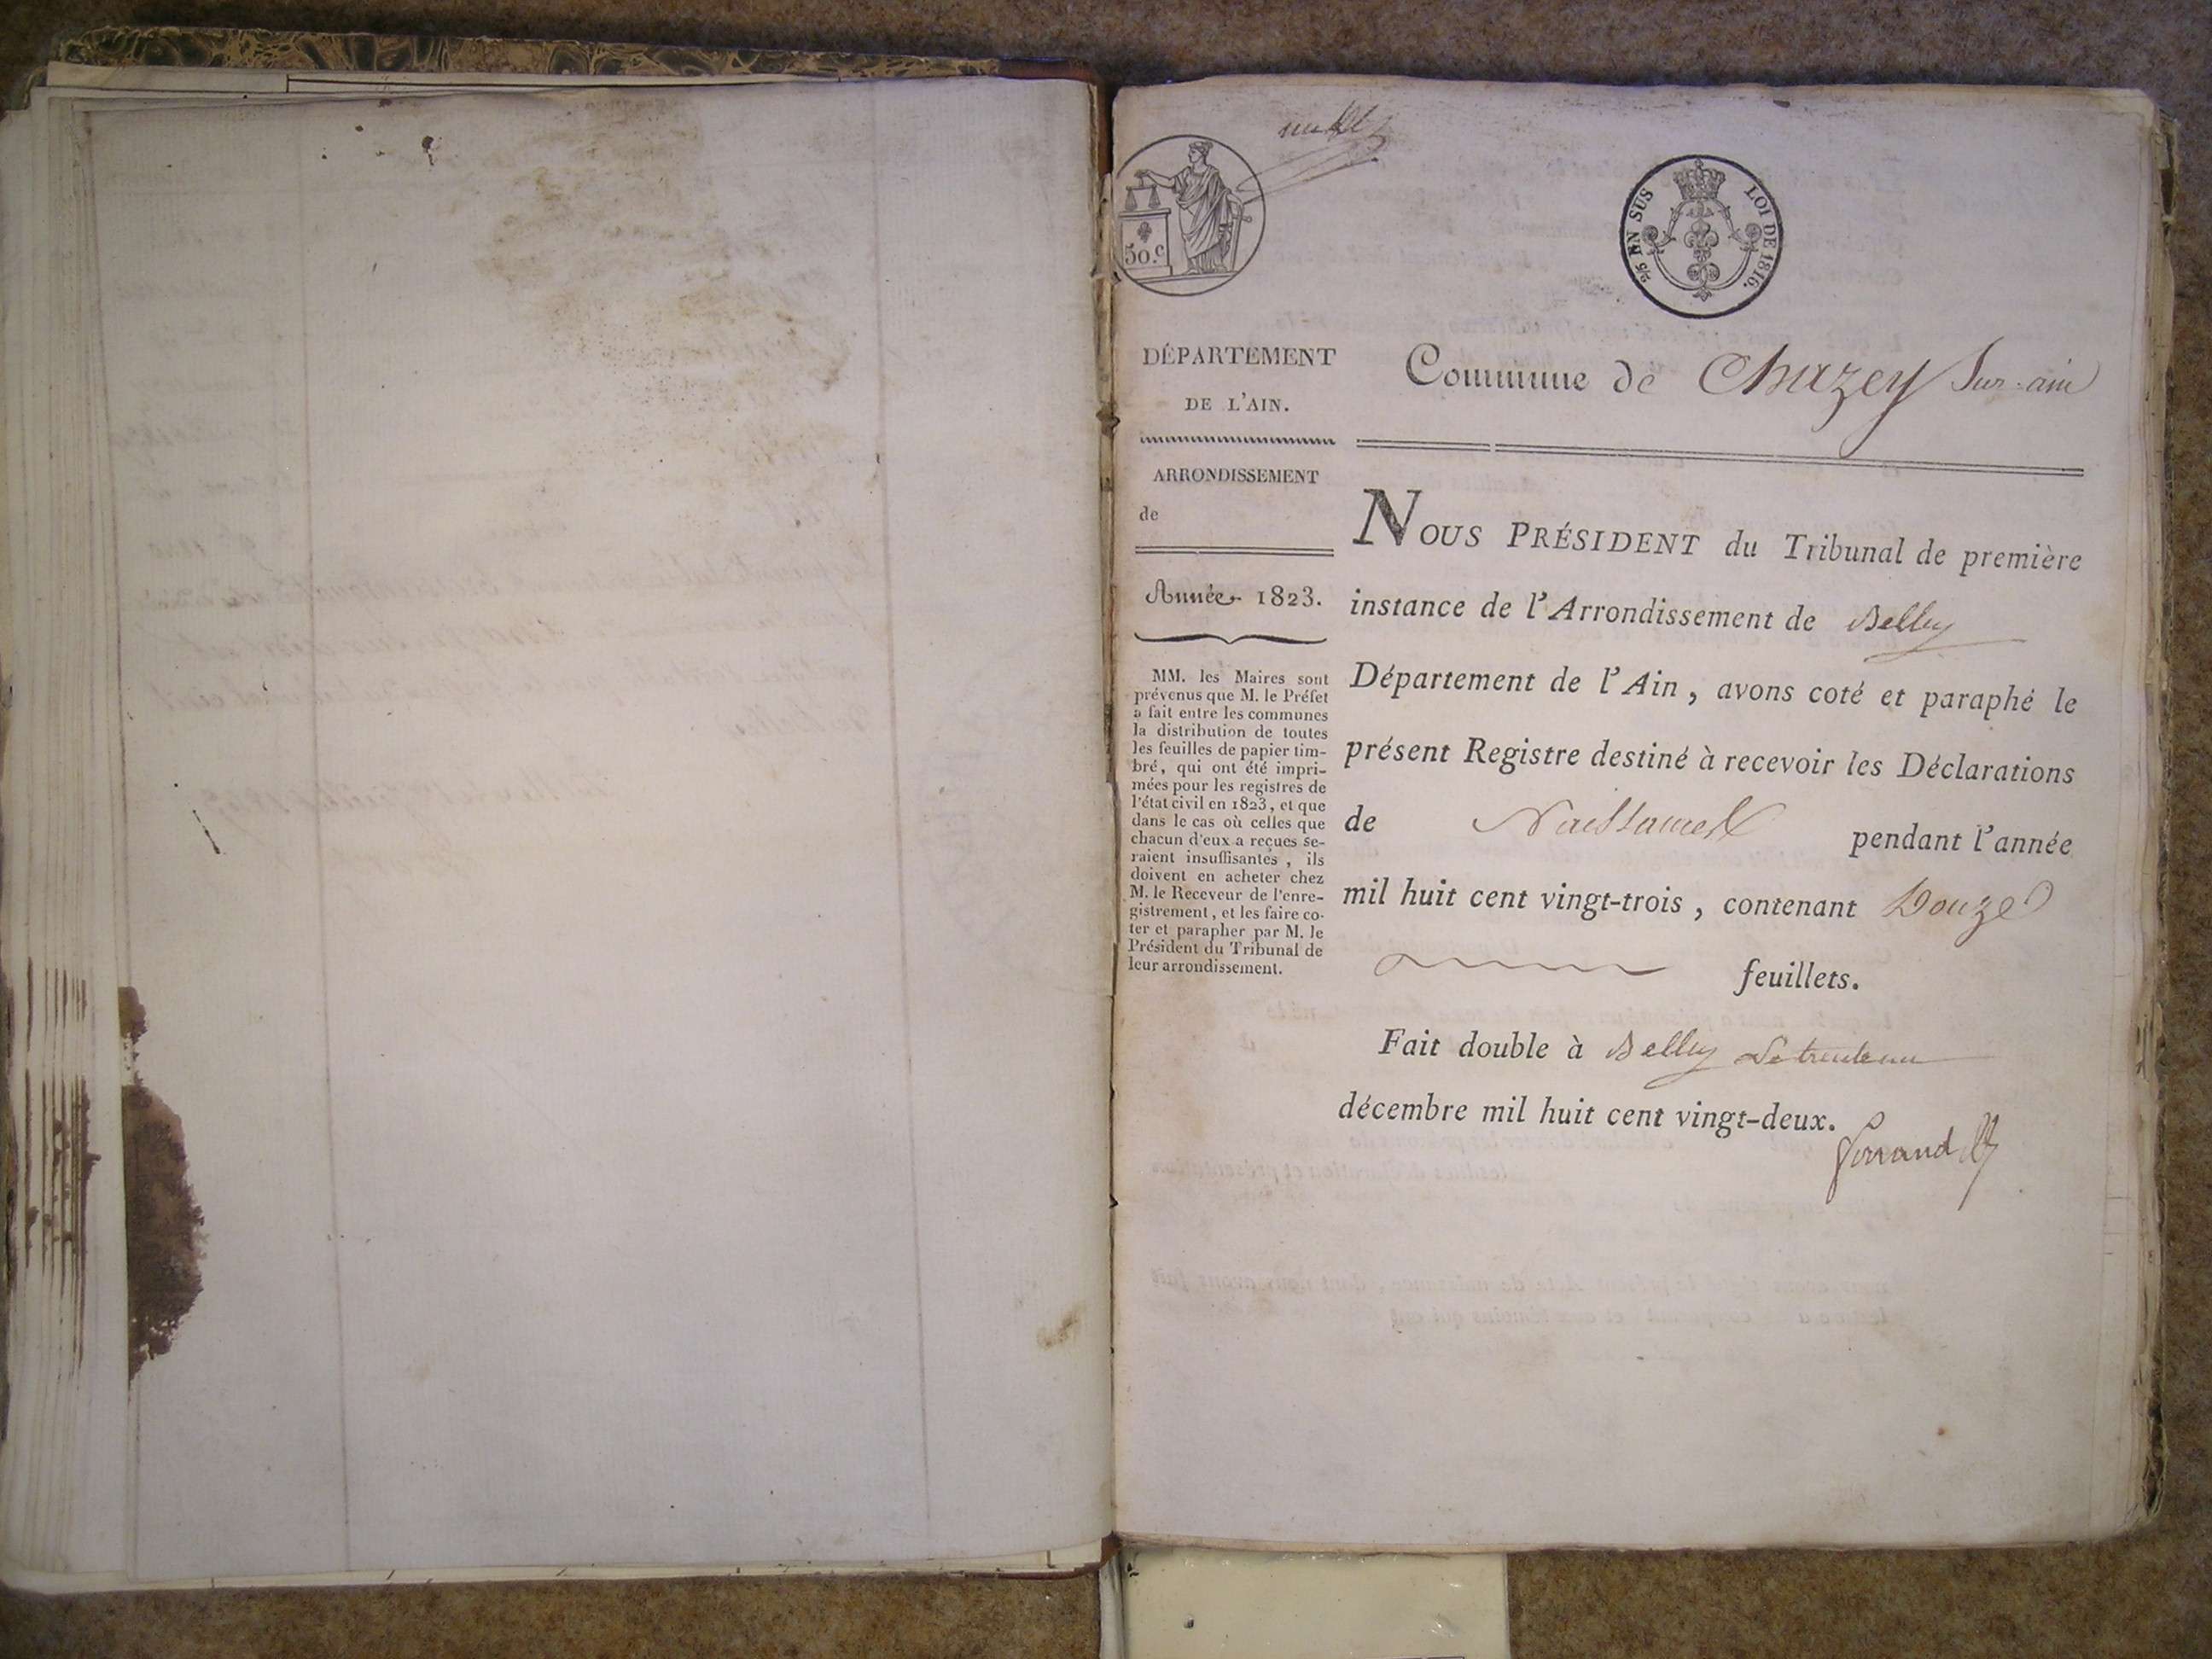 50.c
2/5 EN SUS LOI DE 1816.
DÉPARTEMENT
DE L'AIN.
ARRONDISSEMENT
de
Année 1823.
MM. les Maires sont
prévenus que M. le Préfet
a fait entre les communes
la distribution de toutes
les feuilles de papier tim-
bré, qui ont été impri-
mées pour les registres de
l'état civil en 1823, et que
dans le cas où celles que
chacun d'eux a reçues se-
raient insuffisantes, ils
doivent en acheter chez
M. le Receveur de l'enre-
gistrement, et les faire co-
ter et parapher par M. le
Président du Tribunal de
leur arrondissement.
Commune de Chazey Sur-ain
NOUS PRÉSIDENT du Tribunal de première
instance de l'Arrondissement de Belley
Département de l'Ain, avons coté et paraphé le
présent Registre destiné à recevoir les Déclarations
de Naissances pendant l'année
mil huit cent vingt-trois, contenant Douze
feuillets.
Fait double à Belley Le trente un
décembre mil huit cent vingt-deux.